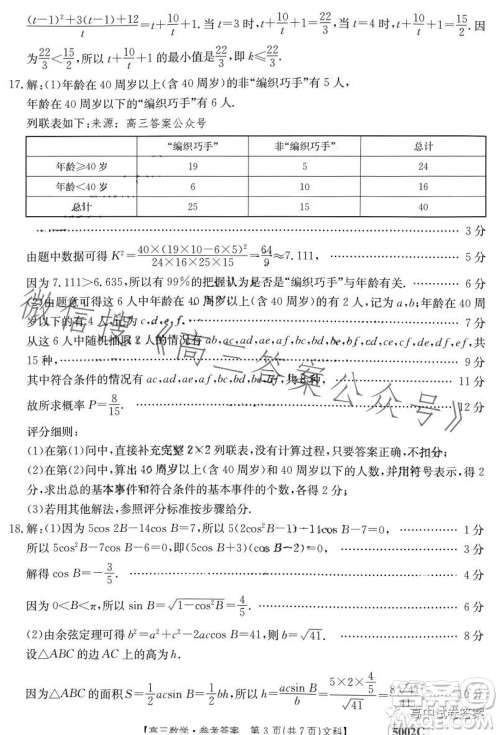 (t-1)²+3(t-1)+12/t=t+10/t+1. 当 t=3 时, t+10/t+1=22/3, 当 t=4 时, t+10/t+1=15/2. 因
为22/3<15/2, 所以 t+10/t+1 的最小值是22/3, 即 k≤22/3.
17. 解: (1)年龄在 40 周岁以上(含 40 周岁)的非“编织巧手”有 5 人,
年龄在 40 周岁以下的“编织巧手”有 6 人.
列联表如下: 来源: 高三答案公众号
“编织巧手” 非“编织巧手” 总计
年龄≥40 岁 19 5 24
年龄<40 岁 6 10 16
总计 25 15 40
3 分
由题中数据可得 K²=40×(19×10-6×5)²/24×16×25×15=64/9≈7.111, 5 分
因为 7.111>6.635, 所以有 99%的把握认为是否是“编织巧手”与年龄有关. 6 分
(2)由题意可得这 6 人中年龄在 40 周岁以上(含 40 周岁)的有 2 人, 记为 a,b; 年龄在 40 周
岁以下的有 4 人, 记为 c,d,e,f. 7 分
从这 6 人中随机抽取 2 人的情况有 ab,ac,ad,ae,af,bc,bd,be,bf,cd,ce,cf,de,df,ef, 共
15 种, 9 分
其中符合条件的情况有 ac,ad,ae,af,bc,bd,be,bf, 共 8 种, 11 分
故所求概率 P=8/15. 12 分
评分细则:
(1)在第(1)问中, 直接补充完整 2×2 列联表, 没有计算过程, 只要答案正确, 不扣分;
(2)在第(2)问中, 算出 40 周岁以上和 40 周岁以下的人数, 并用符号表示, 得 2
分, 求出总的基本事件和符合条件的基本事件的个数, 各得 2 分;
(3)若用其他解法, 参照评分标准按步骤给分.
18. 解: (1)因为 5cos 2B-14cos B=7, 所以 5(2cos²B-1)-14cos B-7=0, 1 分
所以 5cos²B-7cos B-6=0, 即(5cos B+3)(cos B-2)=0. 3 分
解得 cos B=-3/5. 4 分
因为 0<B<π, 所以 sin B=√1-cos²B=4/5. 6 分
(2)由余弦定理可得 b²=a²+c²-2accos B=41, 则 b=√41. 8 分
设△ABC 的边 AC 上的高为 h.
因为△ABC 的面积 S=1/2acsin B=1/2bh, 所以 h=acsin B/b=5×2×4/5/√41=8√41/41, 10 分
【高三数学·参考答案 第 3 页(共 7 页)文科】 5002C
微信搜《高三答案公众号》
高中试卷答案